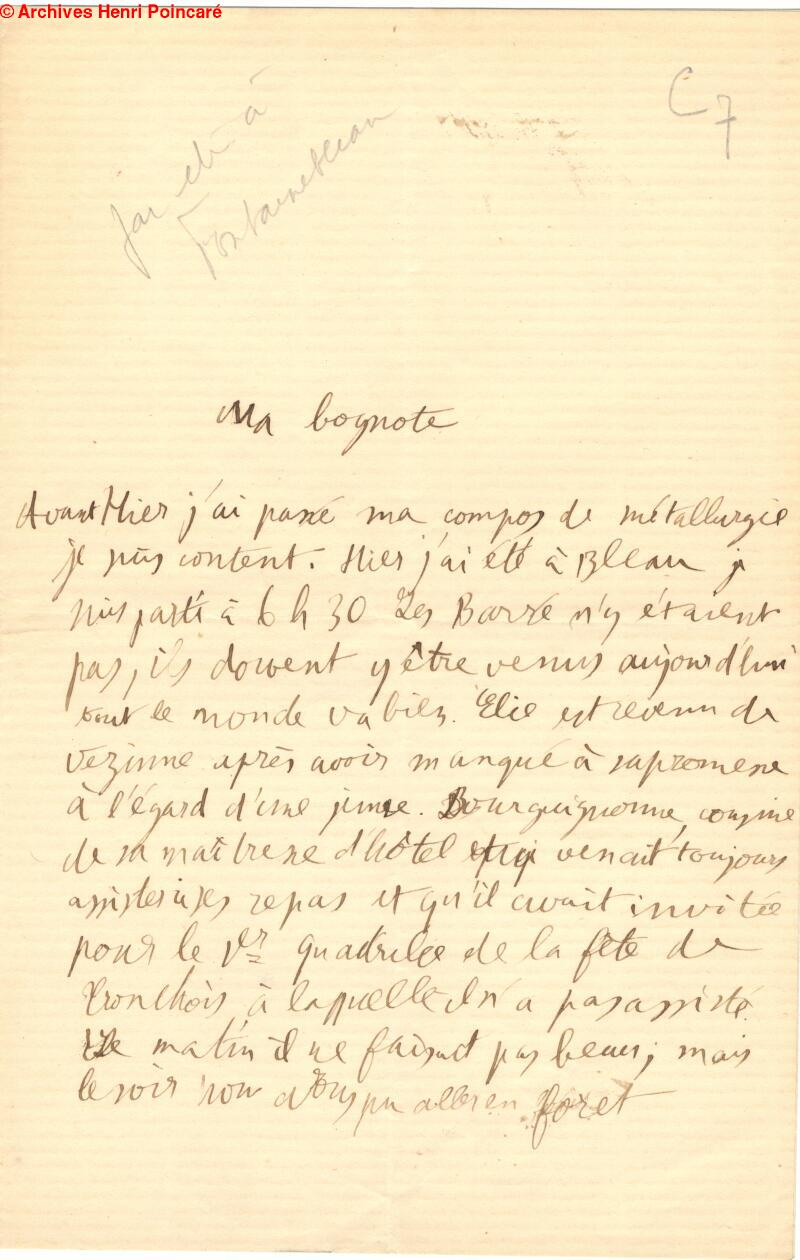 © Archives Henri Poincaré
C 7
J'ai été à
Fontainebleau
Ma bognote
Avant Hier j'ai passé ma compos de métallurgie
je suis content. Hier j'ai été à Bleau je
suis parti à 6 h 30 Les Barré n'y étaient
pas, ils doivent y être venus aujourd'hui
tout le monde va bien. Elie est revenu de
Vezinne après avoir manqué à sa promesse
à l'égard d'une jeune Bourguignonne, cousine
de sa maîtresse d'hôtel qui venait toujours
assister à ses repas et qu'il avait invitée
pour le 1er quadrille de la fête de
Tronchois à laquelle il n'a pas assisté.
Le matin il ne faisait pas beau; mais
le soir nou avons pu aller en foret